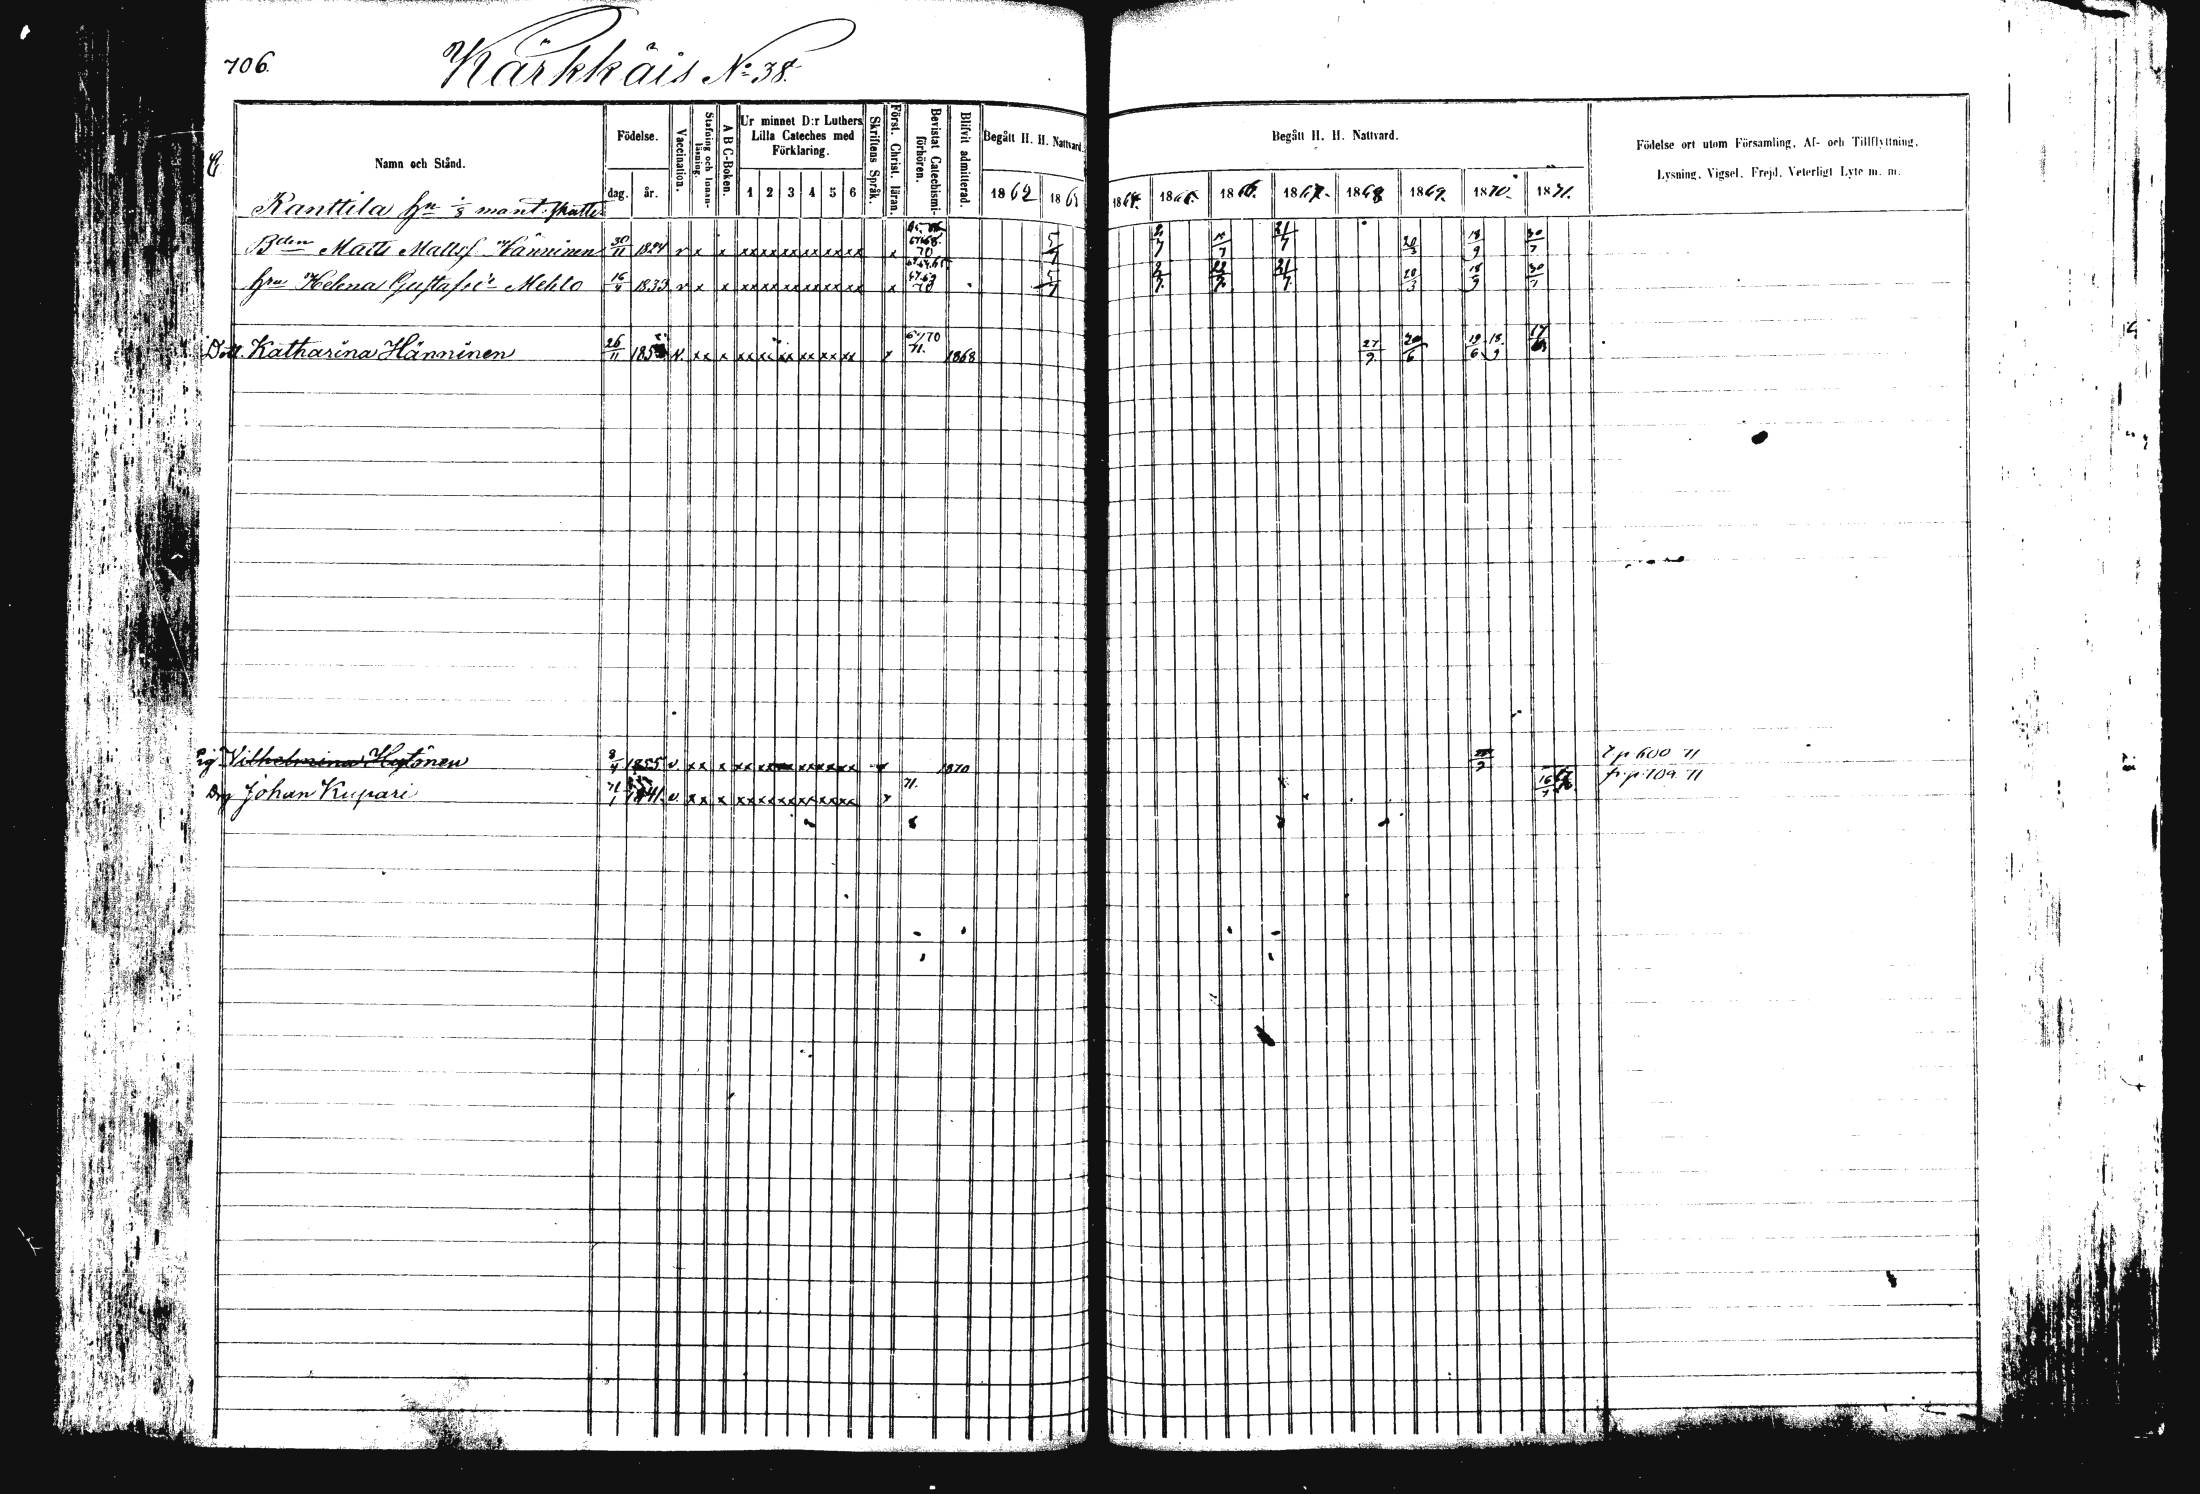 706.
Kärkkäis No 38.
Namn och Stånd.
Födelse.
dag.
år.
Vaccination.
Stafning och Innan-läsning.
A B C-Boken.
Ur minnet D:r Luthers Lilla Cateches med Förklaring.
1 2 3 4 5 6
Skriftens Språk.
Först. Christ. läran.
Bevistat Catechismi-förhören.
Blifvit admitterad.
Begått H. H. Nattvard.
1862 186
Begått H. H. Nattvard.
1864. 1865. 1866. 1867. 1868 1869. 1870. 1871.
Födelse ort utom Församling, Af- och Tillflyttning,
Lysning, Vigsel, Frejd, Veterligt Lyte m. m.
Kanttila hn 1/8 mant. skatte
Bden Matts Mattsf. Hänninen 30/11 1824 v x x xx xx xx xx xx xx x 70 5/7 2/7 21/7 20/3 18/9 30/7
hru Helena Gustafsd:r Mehto 16/4 1833 v x x xx xx xx xx xx xx x 70 5/7 2/7 21/7 20/3 18/9 30/7
Dott. Katharina Hänninen 26/11 185 v. xx x xx xx xx xx xx xx x 71. 1868 27/9 20/6 19/6 18/9 17
Pig Vilhelmina Hytönen 8/4 1855 v. xx x xx xx xx xx xx xx x 1870 t. p 600 71
Drg Johan Kupari 1841. v. xx x xx xx xx xx xx xx x 71. 16/7 fr. p. 709 71